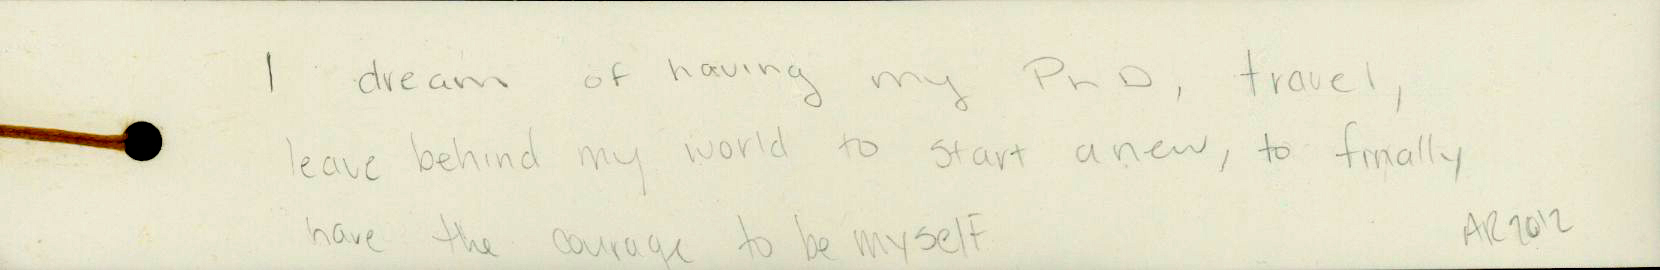 I dream of having my PhD, travel,
leave behind my world to start anew, to finally
have the courage to be myself
AR 2012